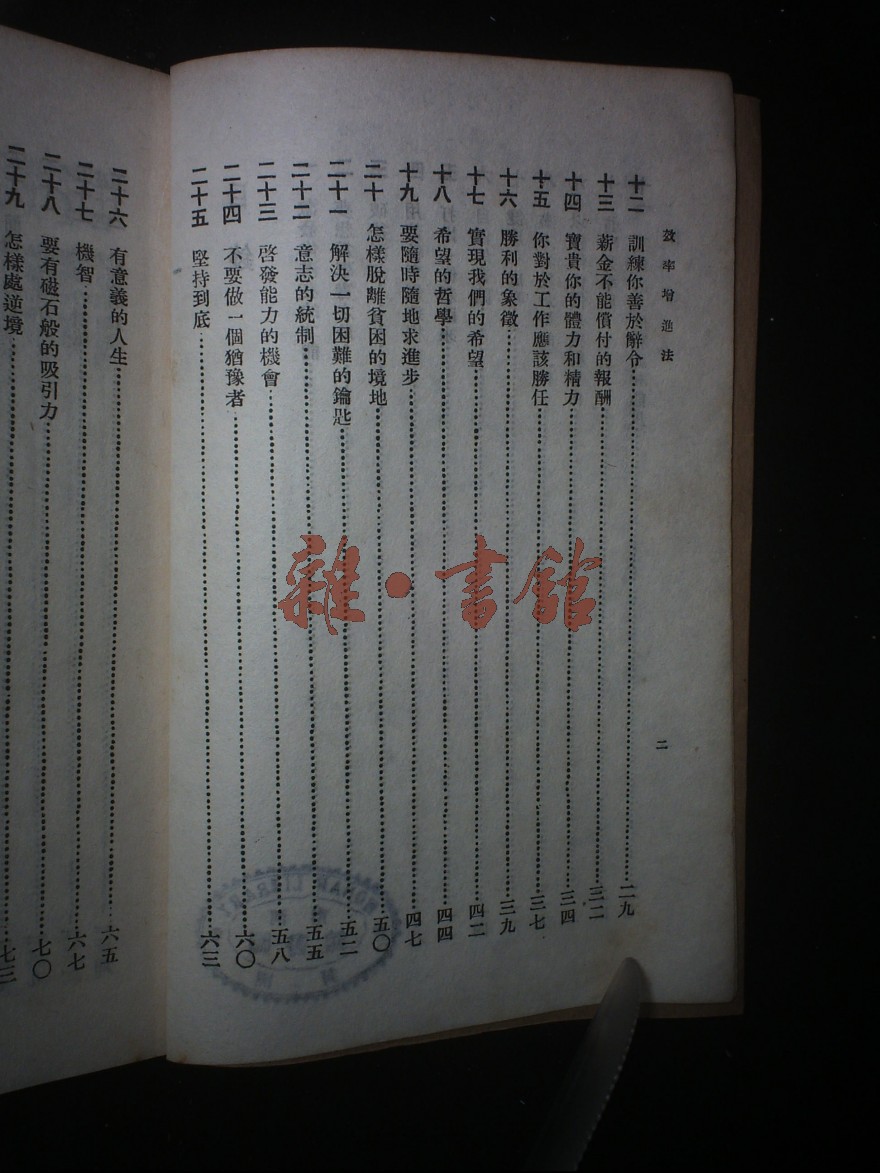 效率增進法
二
十二 訓練你善於辭令 二九
十三 薪金不能償付的報酬 三二
十四 寶貴你的體力和精力 三四
十五 你對於工作應該勝任 三七
十六 勝利的象徵 三九
十七 實現我們的希望 四二
十八 希望的哲學 四四
十九 要隨時隨地求進步 四七
二十 怎樣脫離貧困的境地 五〇
二十一 解決一切困難的鑰匙 五二
二十二 意志的統制 五五
二十三 啓發能力的機會 五八
二十四 不要做一個猶豫者 六〇
二十五 堅持到底 六三
二十六 有意義的人生 六五
二十七 機智 六七
二十八 要有磁石般的吸引力 七〇
二十九 怎樣處逆境 七三
雜·書館